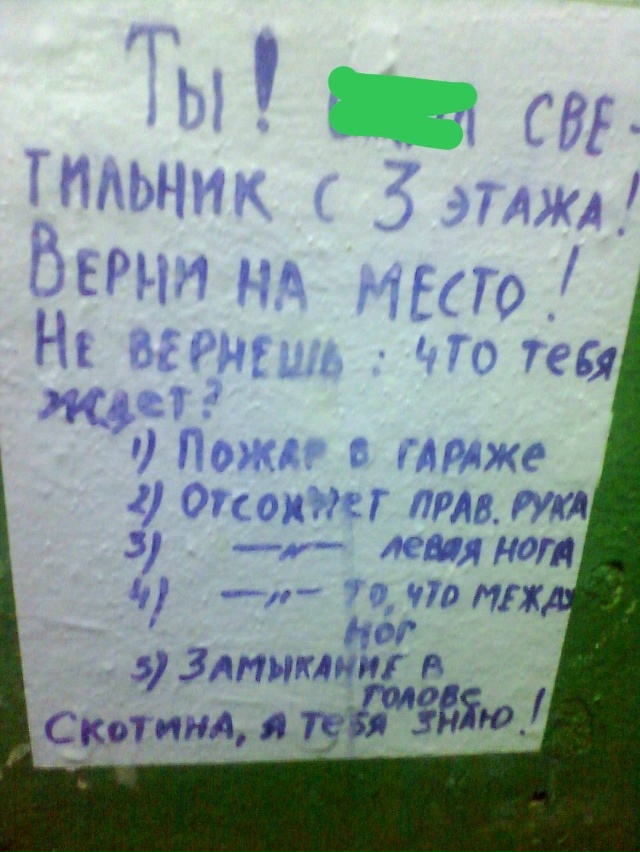 Ты! СВЕ-
ТИЛЬНИК С 3 ЭТАЖА!
ВЕРНИ НА МЕСТО!
НЕ ВЕРНЕШЬ: ЧТО ТЕБЯ
ждет?
1) ПОЖАР В ГАРАЖЕ
2) ОТСОХНЕТ ПРАВ. РУКА
3) —„— ЛЕВАЯ НОГА
4) —„— ТО, ЧТО МЕЖДУ
НОГ
5) ЗАМЫКАНИЕ В
ГОЛОВЕ
СКОТИНА, Я ТЕБЯ ЗНАЮ!